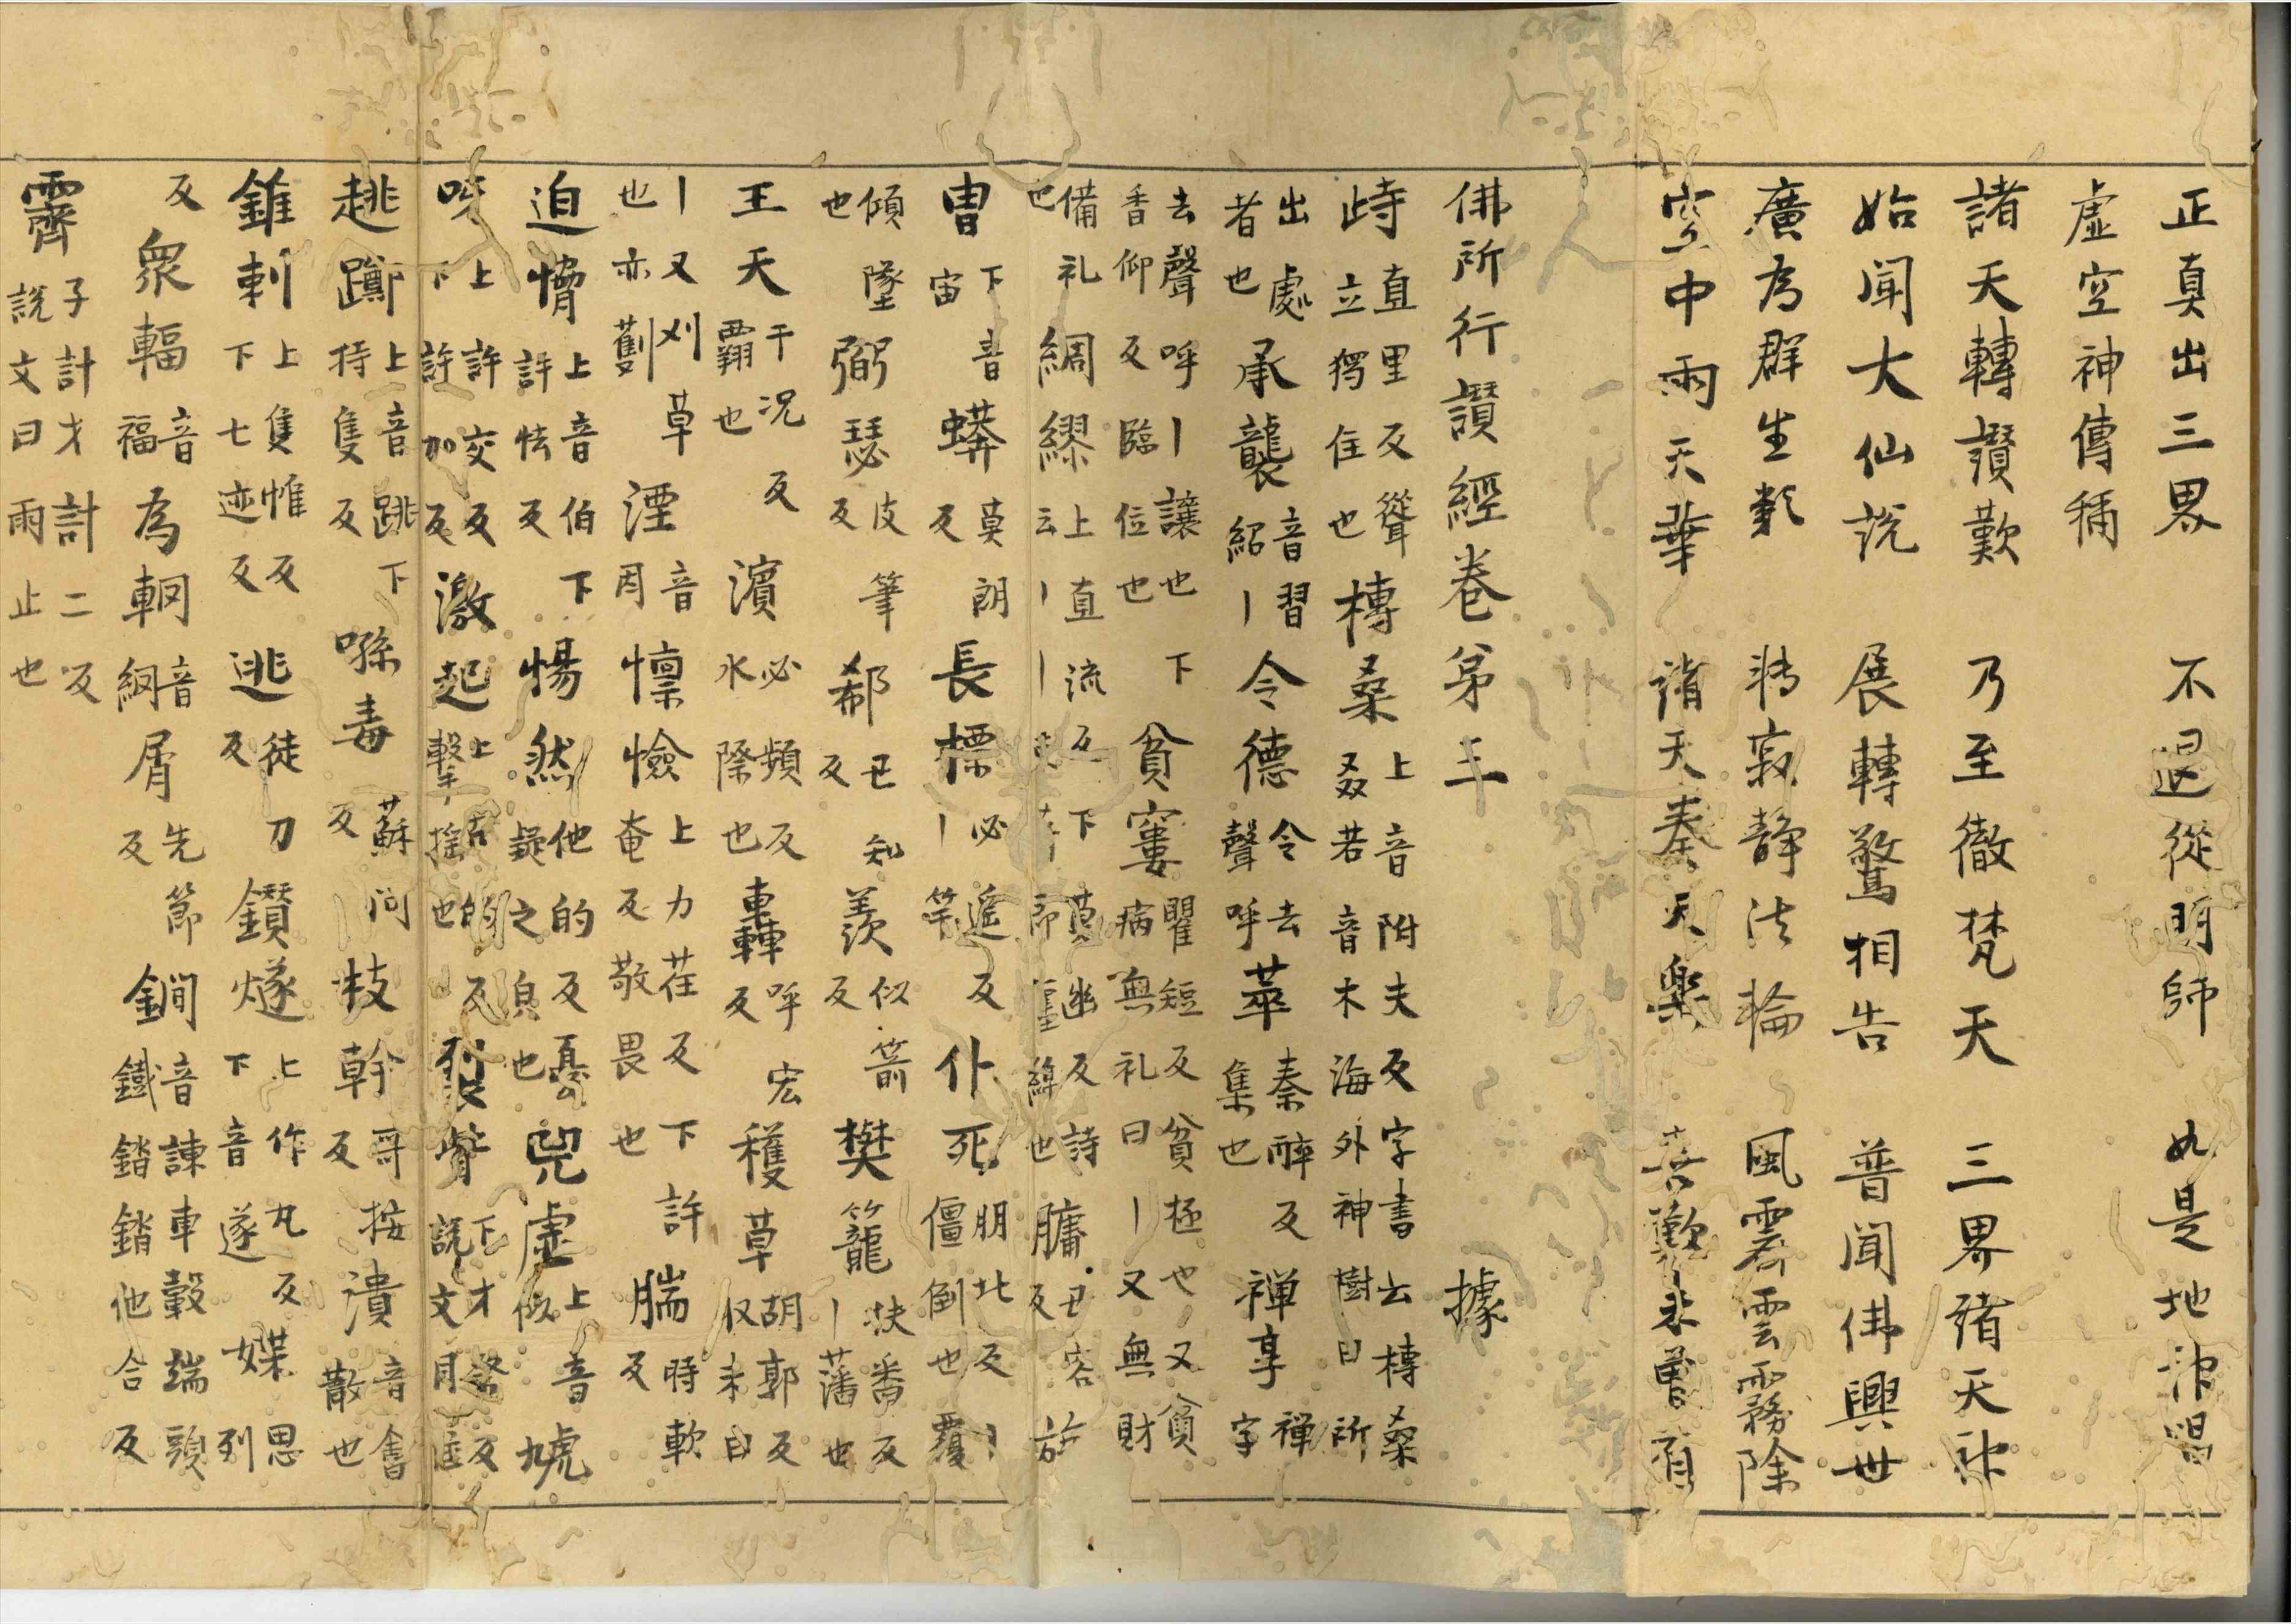 正真出三界　不退從明師　如是地神唱
虛空神傳稱
諸天轉讃歎　乃至徹梵天　三界諸天神
始聞大仙說　展轉驚相告　普聞佛興世
廣為群生類　轉寂靜法輪　風霽雲霧除
空中雨天華　諸天奏天樂　嘉歎未曾有
佛所行讃經卷第三　據
峙直里反聳立獨住也榑桑上音附夫反字書云榑桑叒若音木海外神樹日所
出處者也承襲音習紹丨令德令去聲呼萃秦醉反集也禅享禅字
去聲呼丨讓也下香仰反臨位也貧窶瞿短反貧極也又貧病無礼曰丨又無財
備礼也綢繆上直流反下莫幽反詩云丨丨牖丑容反
胄下音宙蟒莫朗反長標必遥反丨竿仆死朋北反丨僵倒也覆
傾墜也弼瑟皮筆反郗丑知反羨似箭反樊籠扶番反丨藩也
王天干况反霸也濱必頻反水際也轟呼宏反穫草胡郭反
丨又刈草也亦劐湮音因懍憸上力荏反下許奄反敬畏也腨時軟反
迫愶上音伯下許怯反惕然他的反憂疑之皃也兕虛上音
呀上許交反下許加反激起上古的反擊揺也裂眥下才
趒躑上音跳下持隻反㗭毒蘇问反枝幹哥按反潰音會散也
錐刺上隻惟反下七迹反逃徒刀反鑚燧上作丸反下音遂媟思列
反衆輻音福為輞音網屑先節反鐧音諫車轂端頭鐵錔錔他合反
霽子計才計二反説文曰雨止也